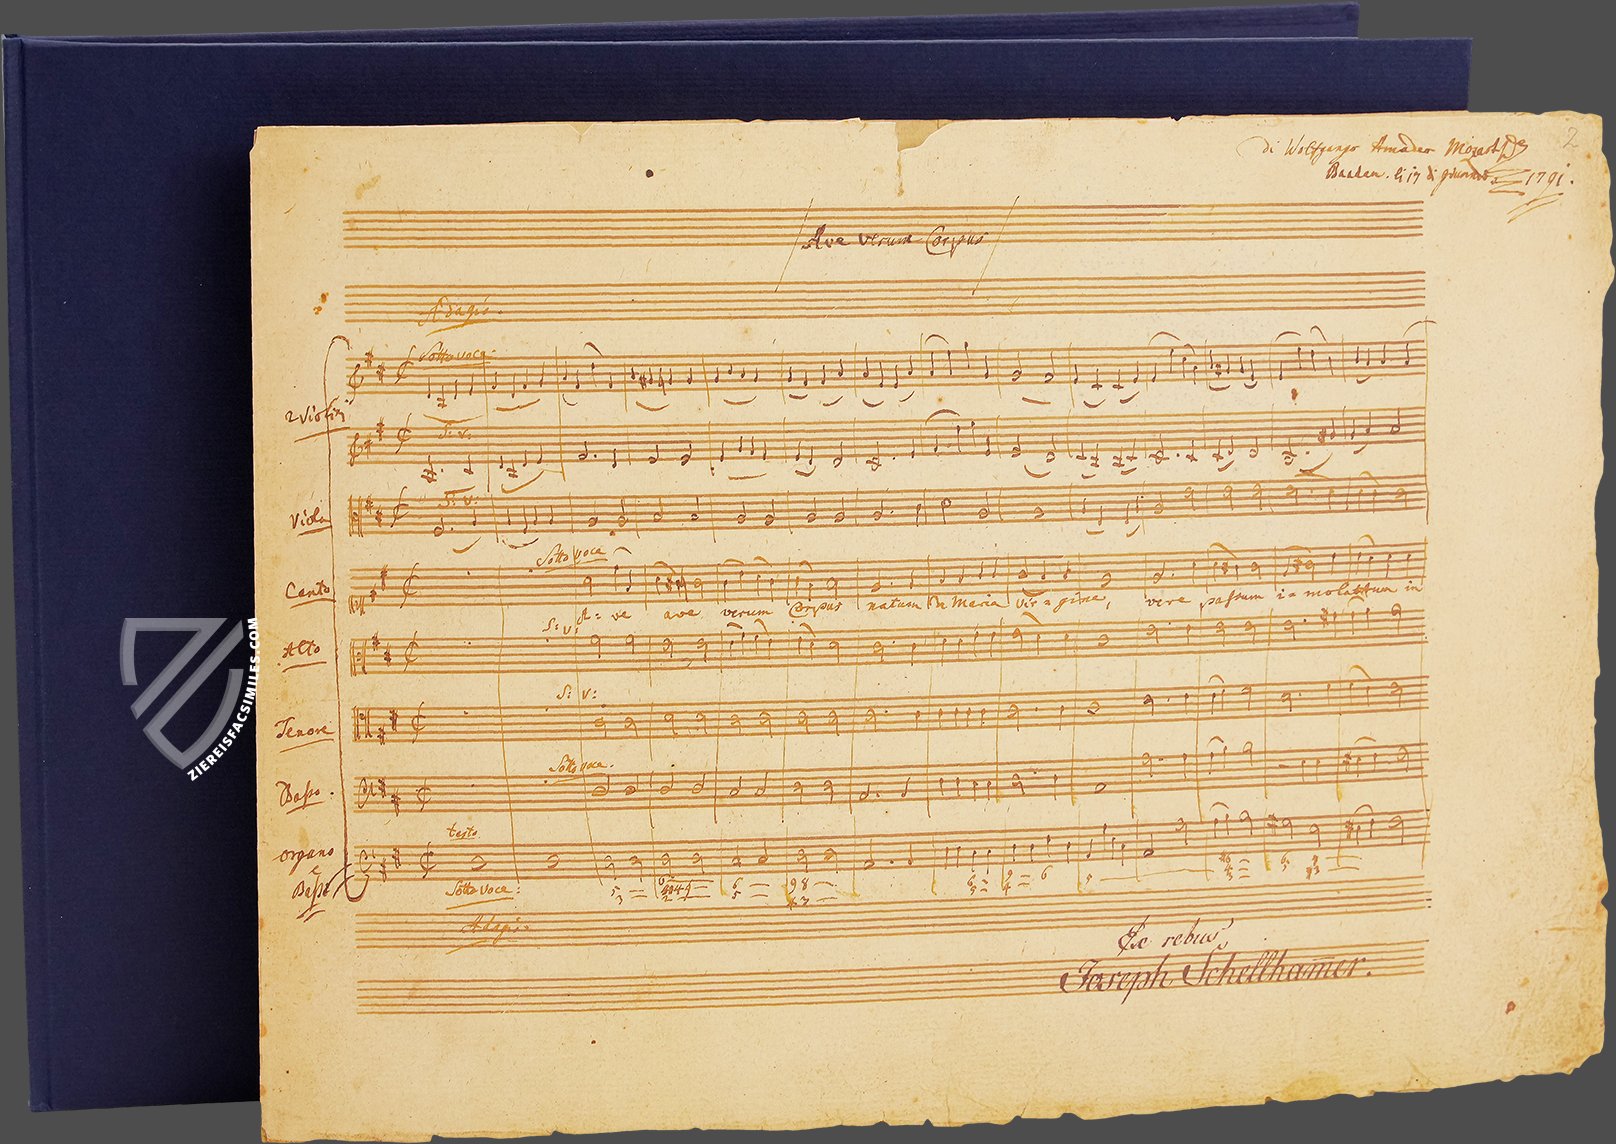 2
di Wolfgango Amadeo Mozart
Baaden. li 17 di giunio 1791.
Ave verum Corpus
Adagio.
Sotto voce
2 Violini
S: v:
Viola
S: v:
Sotto voce
Canto
A = ve ave verum Corpus natum de Maria vir = gine, vere passum i = molattum in
S: v:
Alto
S: v:
Tenore
Sotto voce.
Basso.
testo
organo
e Bassi
Sotto voce:
Adagio.
Ex rebus
Joseph Schellhamer.
ZIEREISFACSIMILES.COM